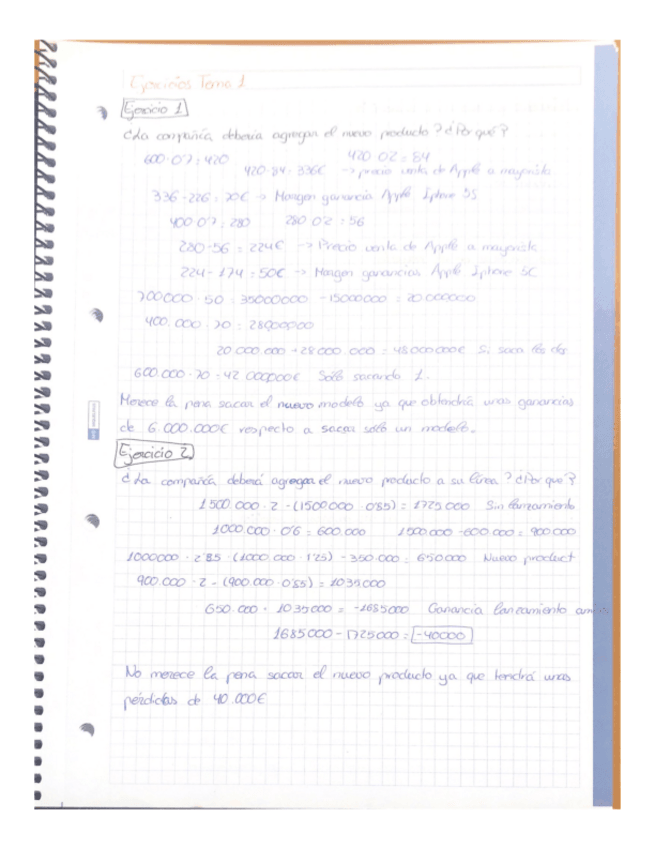 Ejercicios Tema 1
Ejercicio 1
¿La compañía debería agregar el nuevo producto? ¿Por qué?
600·0'7 = 420 420·0'2 = 84
420-84 = 336€ -> precio venta de Apple a mayorista
336-226 = 70€ -> Margen ganancia Apple Iphone 5S
400·0'7 = 280 280·0'2 = 56
280-56 = 224€ -> Precio venta de Apple a mayorista
224-174 = 50€ -> Margen ganancias Apple Iphone 5C
700000·50 = 35000000 - 15000000 = 20000000
400.000·70 = 28000000
20.000.000 + 28.000.000 = 48000000€ Si saca los dos
600.000·70 = 42.000000€ Sólo sacando 1.
Merece la pena sacar el nuevo modelo ya que obtendrá unas ganancias
de 6.000.000€ respecto a sacar sólo un modelo.
Ejercicio 2
¿La compañía deberá agregar el nuevo producto a su línea? ¿Por qué?
1500.000·2 - (1500000·0'85) = 1725000 Sin lanzamiento
1000.000·0'6 = 600.000 1500000-600.000 = 900000
1000000·2'85 - (1000.000·1'25) - 350.000 = 650000 Nuevo product
900.000·2 - (900.000·0'85) = 1035000
650.000 + 1035000 = 1685000 Ganancia lanzamiento
1685000 - 1725000 = -40000
No merece la pena sacar el nuevo producto ya que tendrá unas
pérdidas de 40.000€